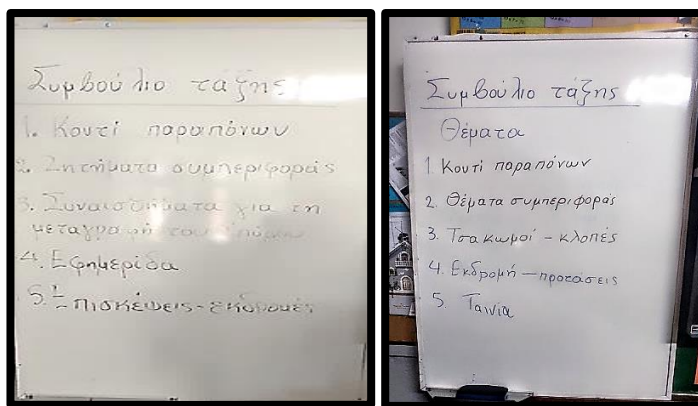 Συμβούλιο τάξης
1. Κουτί παραπόνων
2. Ζητήματα συμπεριφοράς
3. Συναισθήματα για τη
μεταγραφή του
4. Εφημερίδα
5. Επισκέψεις - εκδρομές
Συμβούλιο τάξης
Θέματα
1 Κουτί παραπόνων
2. Θέματα συμπεριφοράς
3. Τσακωμοί - κλοπές
4. Εκδρομή - προτάσεις
5. Ταινία